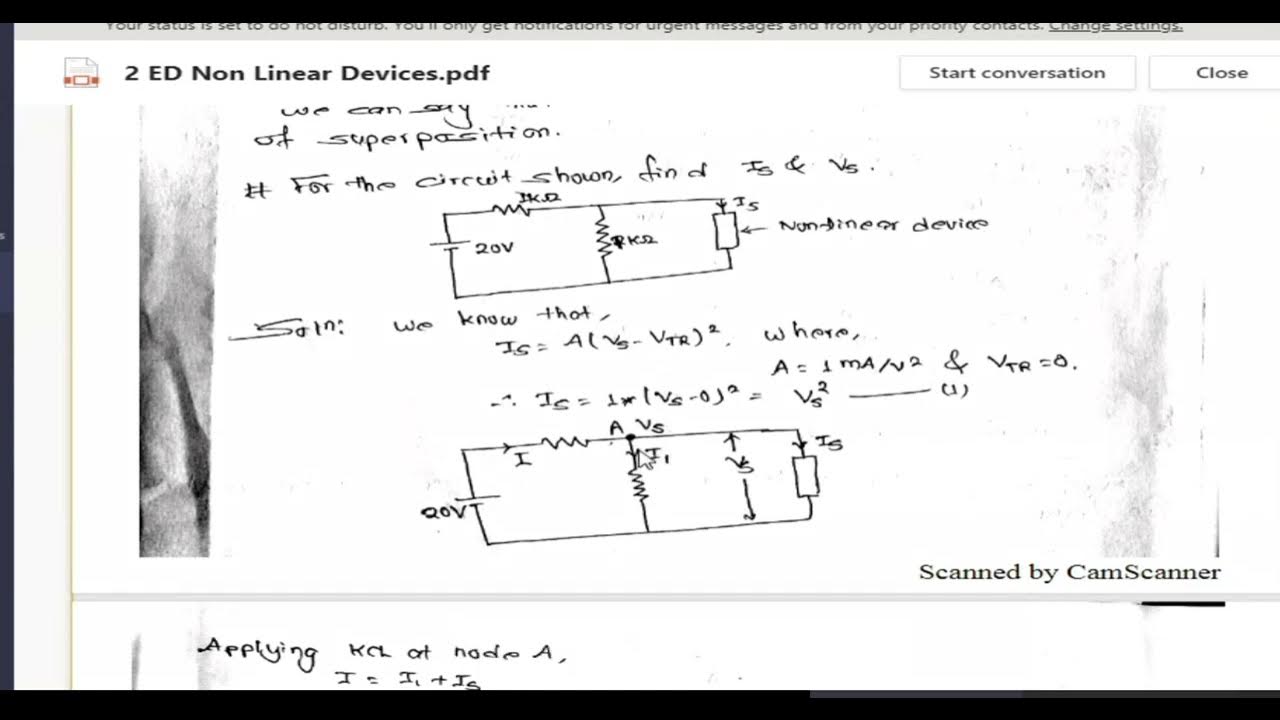 Your status is set to do not disturb. You'll only get notifications for urgent messages and from your priority contacts. Change settings.
2 ED Non Linear Devices.pdf
Start conversation
Close
we can say
of superposition.
# For the circuit shown, find Is & Vs.
1KΩ
Is
Non-linear device
20V
1KΩ
Soln: we know that,
Is = A(Vs - VTR)², where,
A = 1 mA/V² & VTR = 0.
∴ Is = 1*(Vs-0)² = Vs² ——— (1)
A Vs
I
I1
Vs
Is
20V
Scanned by CamScanner
Applying KCL at node A,
I = I1 + Is